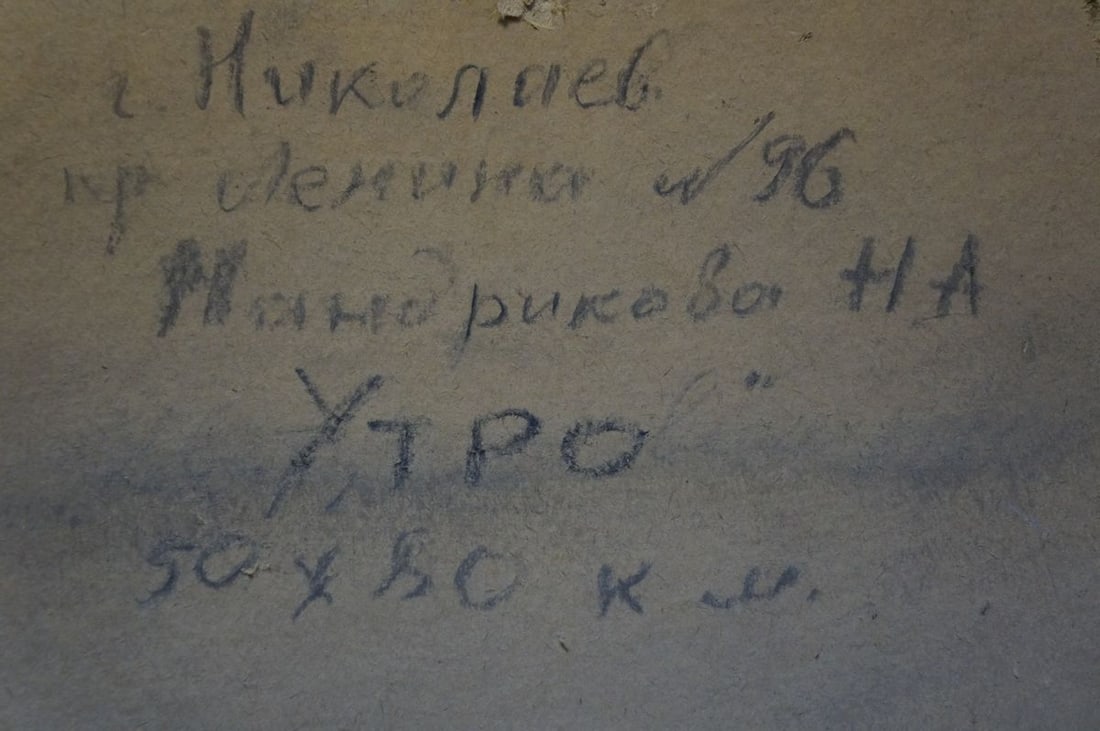 г. Николаев
пр Ленина №96
Мандрикова НА
Утро"
50 х 80 к м.